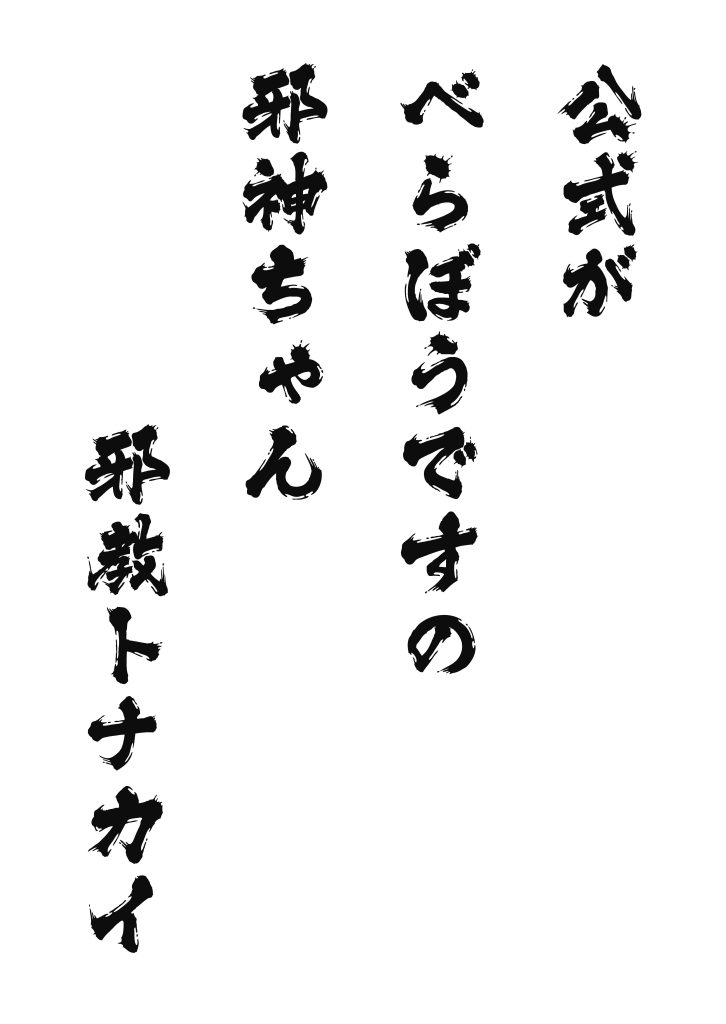 公式が
べらぼうですの
邪神ちゃん
邪教トナカイ